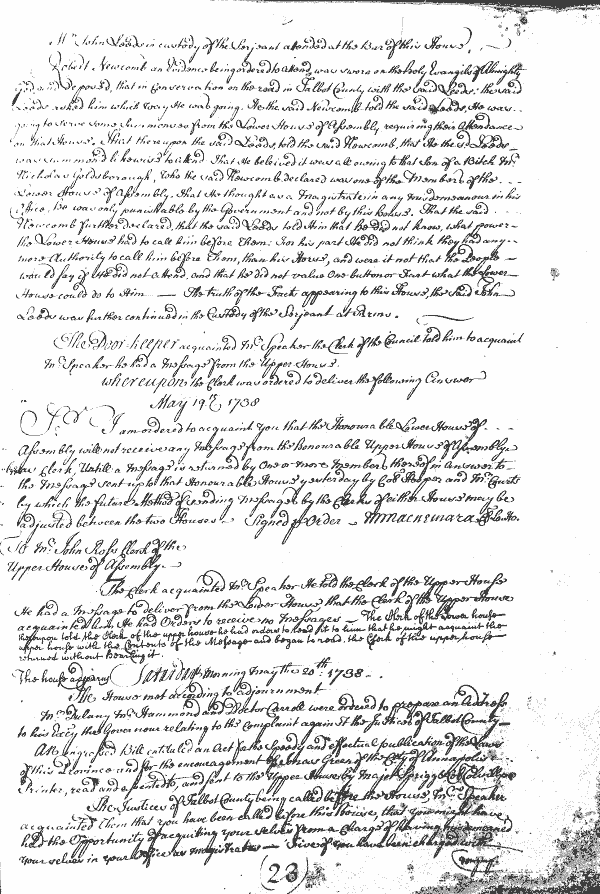 Mr. John Leeds in custody of the Serjeant attended at the Bar of this House.
Robert Newcomb an Evidence being ordered to attend, was sworn on the holy Evangils of Almighty
god and deposed, that in conversation on the road in Talbot County with the said Leeds, the said
Leeds asked him which way He was going. He the said Newcomb told the said Leeds, He was
going to serve some Summonses from the Lower House of Assembly, requiring their Attendance
on that House. That thereupon the said Leeds, told the said Newcomb, that He the sd. Leeds
was summond likewise to attend. That He believed it was all owing to that Son of a Bitch Mr.
Nicholas Goldsborough, Who the said Newcomb declared was one of the Members of the
Lower House of Assembly. That He thought as a Magistrate in any misdemeanour in his
Office, He was only punishable by the Government and not by this House. That the said
Newcomb further declared, that the said Leeds told Him that He did not know, what power
the Lower House had to call him before Them. For his part He did not think they had any
more Authority to call him before Them, than his Horse, and were it not that the People
would say if He did not attend, and that he did not value One button or Turd what the Lower
House could do to Him — The truth of the Facts appearing to this House, the Said John
Leeds was further continued in the Custody of the Serjeant at Arms.
The Door-keeper acquainted Mr. Speaker the Clerk of the Council told him to acquaint
Mr. Speaker he had a Message from the Upper House.
whereupon the Clerk was ordered to deliver the following Answer
May 19th 1738
Sr. I am ordered to acquaint You that the Honourable Lower House of
Assembly will not receive any Message from the Honourable Upper House of Assembly
by a Clerk, Untill a Message is returned by One or more Members thereof in Answer to
the Message sent up to that Honourable House yesterday by Coll Hooper and Mr. Courts
by which the future Method of sending Messages by the Clerks of either House may be
adjusted between the two Houses. Signed p Order — MMacnemara Cl. Lo. Ho.
To Mr. John Ross Clerk of the
Upper House of Assembly.
The Clerk acquainted Mr. Speaker He told the Clerk of the Upper House
He had a Message to deliver from the Lower House, that the Clerk of the Upper House
acquainted him He had Orders to receive no Messages — The Clerk of the Lower house
thereupon told the Clerk of the upper house he had orders to read it to him that he might acquaint the
upper house with the Contents of the Message and began to read, the Clerk of the upper house
returned without Hearing it.
The house adjourns Saturday Morning May the 20th 1738.
The House met according to adjournment
Mr. Dulany Mr. Hammond and Doctor Carroll were ordered to prepare an Address
to his Excy the Governour relating to the Complaint against the Justices of Talbot County
An ingrossed Bill entituled an Act for the Speedy and effectual publication of the Laws
of this Province and for the encouragement of Jonas Green of the City of Annapolis
Printer, read and assented to, and sent to the Upper House by Major Sprigg &
The Justices of Talbot County being called before the House, Mr. Speaker
acquainted Them that you have been called before this house, that you might have
had the Opportunity of acquiting your selves from a Charge of having misdemeaned
your selves in your Office as magistrates — Since you have been charged with
(23)